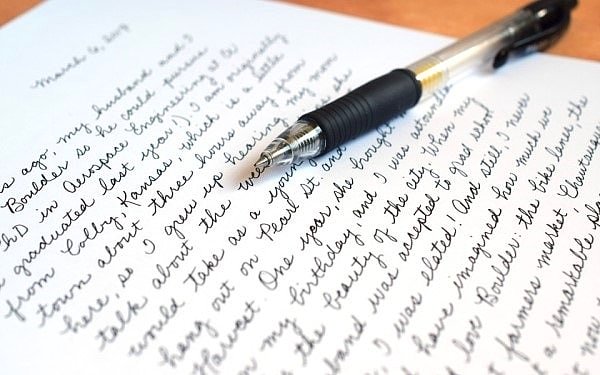 March 6,
s ago. my husband and I
Boulder so he could pursue
hD in Aerospace Engineering at C
graduated last year.) I am originally
from Colby, Kansas, which is a little
town about three hours away from
here, so I grew up hearing my mom
talk about the
would take as a young
hang out on Pearl St. and
Harvest. One year, she brought
on my birthday, and I was
the beauty of the city. When my
band was accepted to grad school
I was elated! And still, I never
have imagined how much we
love Boulder: the bike lanes, the
farmers market, Chautauqua
a remarkable pla
now